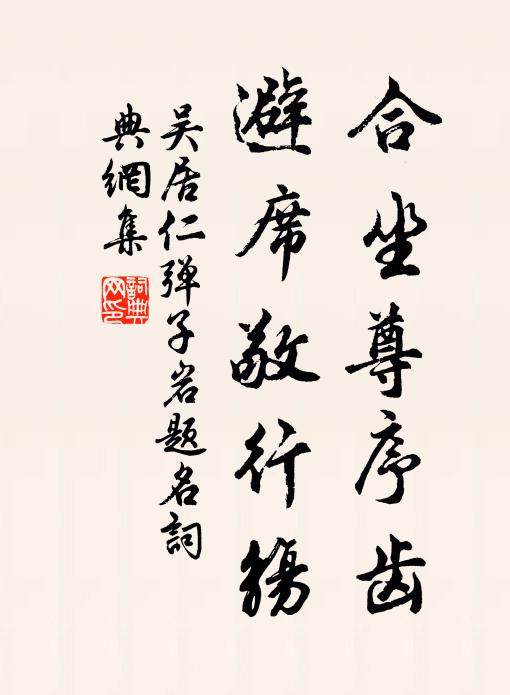 合坐尊序齿
避席敬行觞
吴居仁弹子岩题名词
典網集
詞典
网印